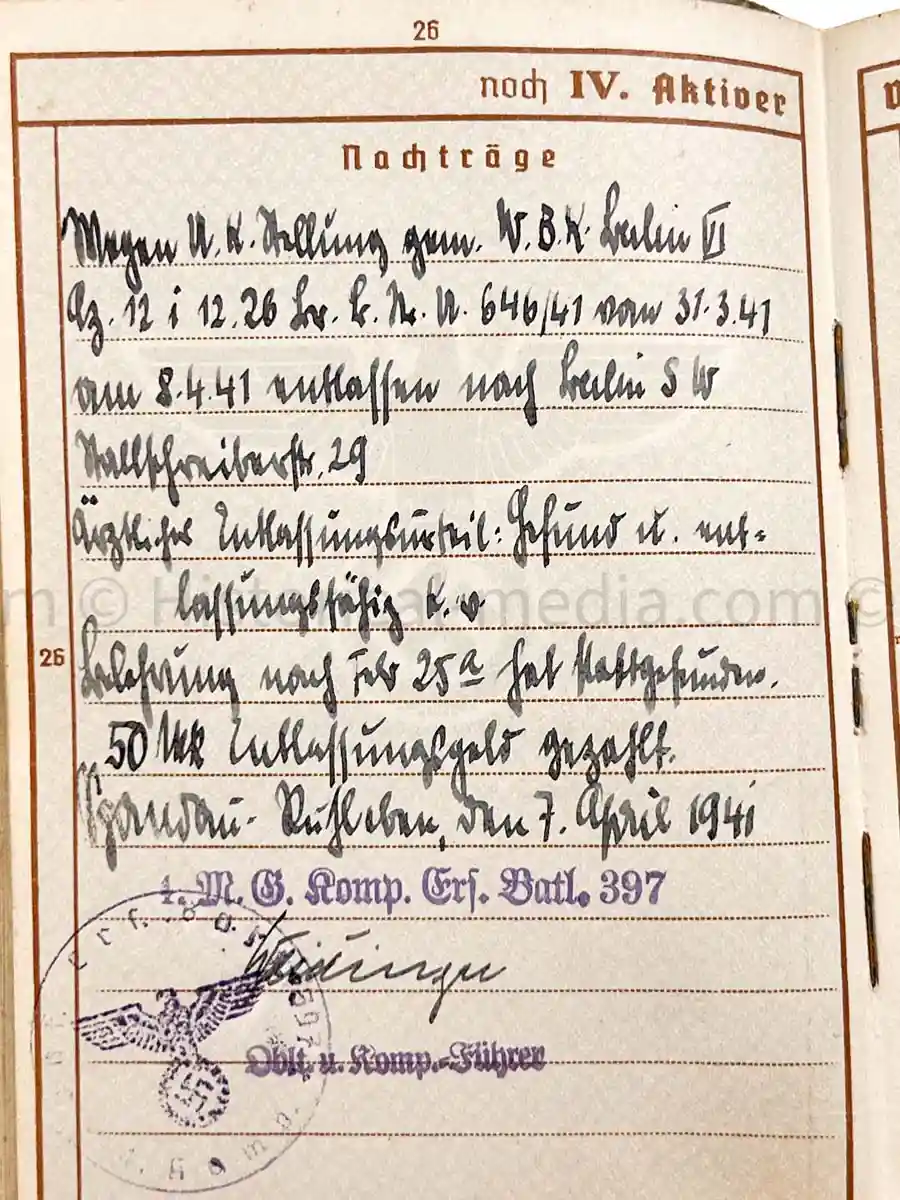 26
noch IV. Aktiver
Nachträge
Wegen U.K. Stellung gem. W.B.K. Berlin VI
Az. 12 i 12.26 Br. B. Nr. U. 646/41 vom 31.3.41
am 8.4.41 entlassen nach Berlin S W
Stallschreiberstr. 29
Ärztliches Entlassungsurteil: Gesund u. ent-
lassungsfähig k.v.
26
Belehrung nach 25a hat stattgefunden.
50 RM Entlassungsgeld gezahlt.
Spandau-Ruhleben, den 7. April 1941
1. M. G. Komp. Ers. Batl. 397
Oblt. u. Komp.-Führer